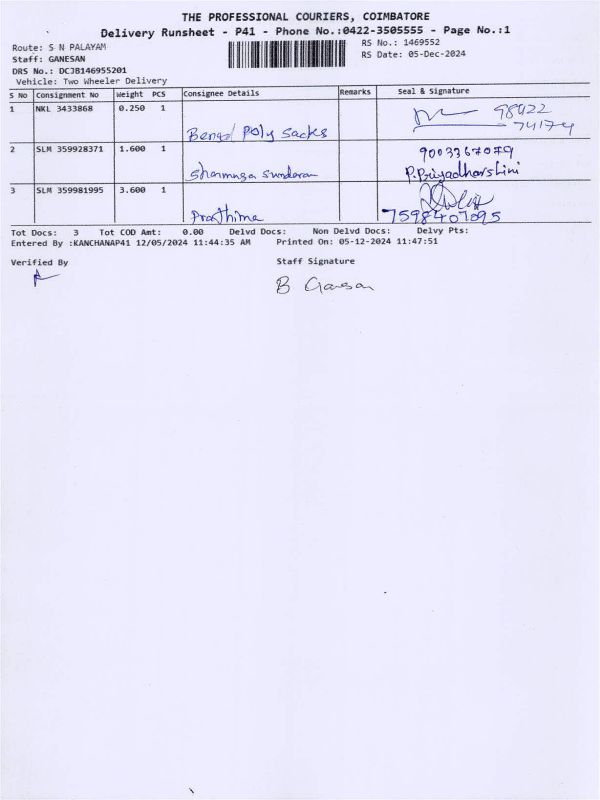 THE PROFESSIONAL COURIERS, COIMBATORE
Delivery Runsheet - P41 - Phone No.:0422-3505555 - Page No.:1
Route: S N PALAYAM
RS No.: 1469552
Staff: GANESAN
RS Date: 05-Dec-2024
DRS No.: DCJB146955201
Vehicle: Two Wheeler Delivery
S No Consignment No Weight PCS Consignee Details Remarks Seal & Signature
1 NKL 3433868 0.250 1
98422
74174
Bengal Poly Sacks
2 SLM 359928371 1.600 1
9003367079
Shanmuga Sundaram P.Priyadharshini
3 SLM 359981995 3.600 1
Prathima 7598407095
Tot Docs: 3 Tot COD Amt: 0.00 Delvd Docs: Non Delvd Docs: Delvy Pts:
Entered By :KANCHANAP41 12/05/2024 11:44:35 AM Printed On: 05-12-2024 11:47:51
Verified By Staff Signature
B Ganesan